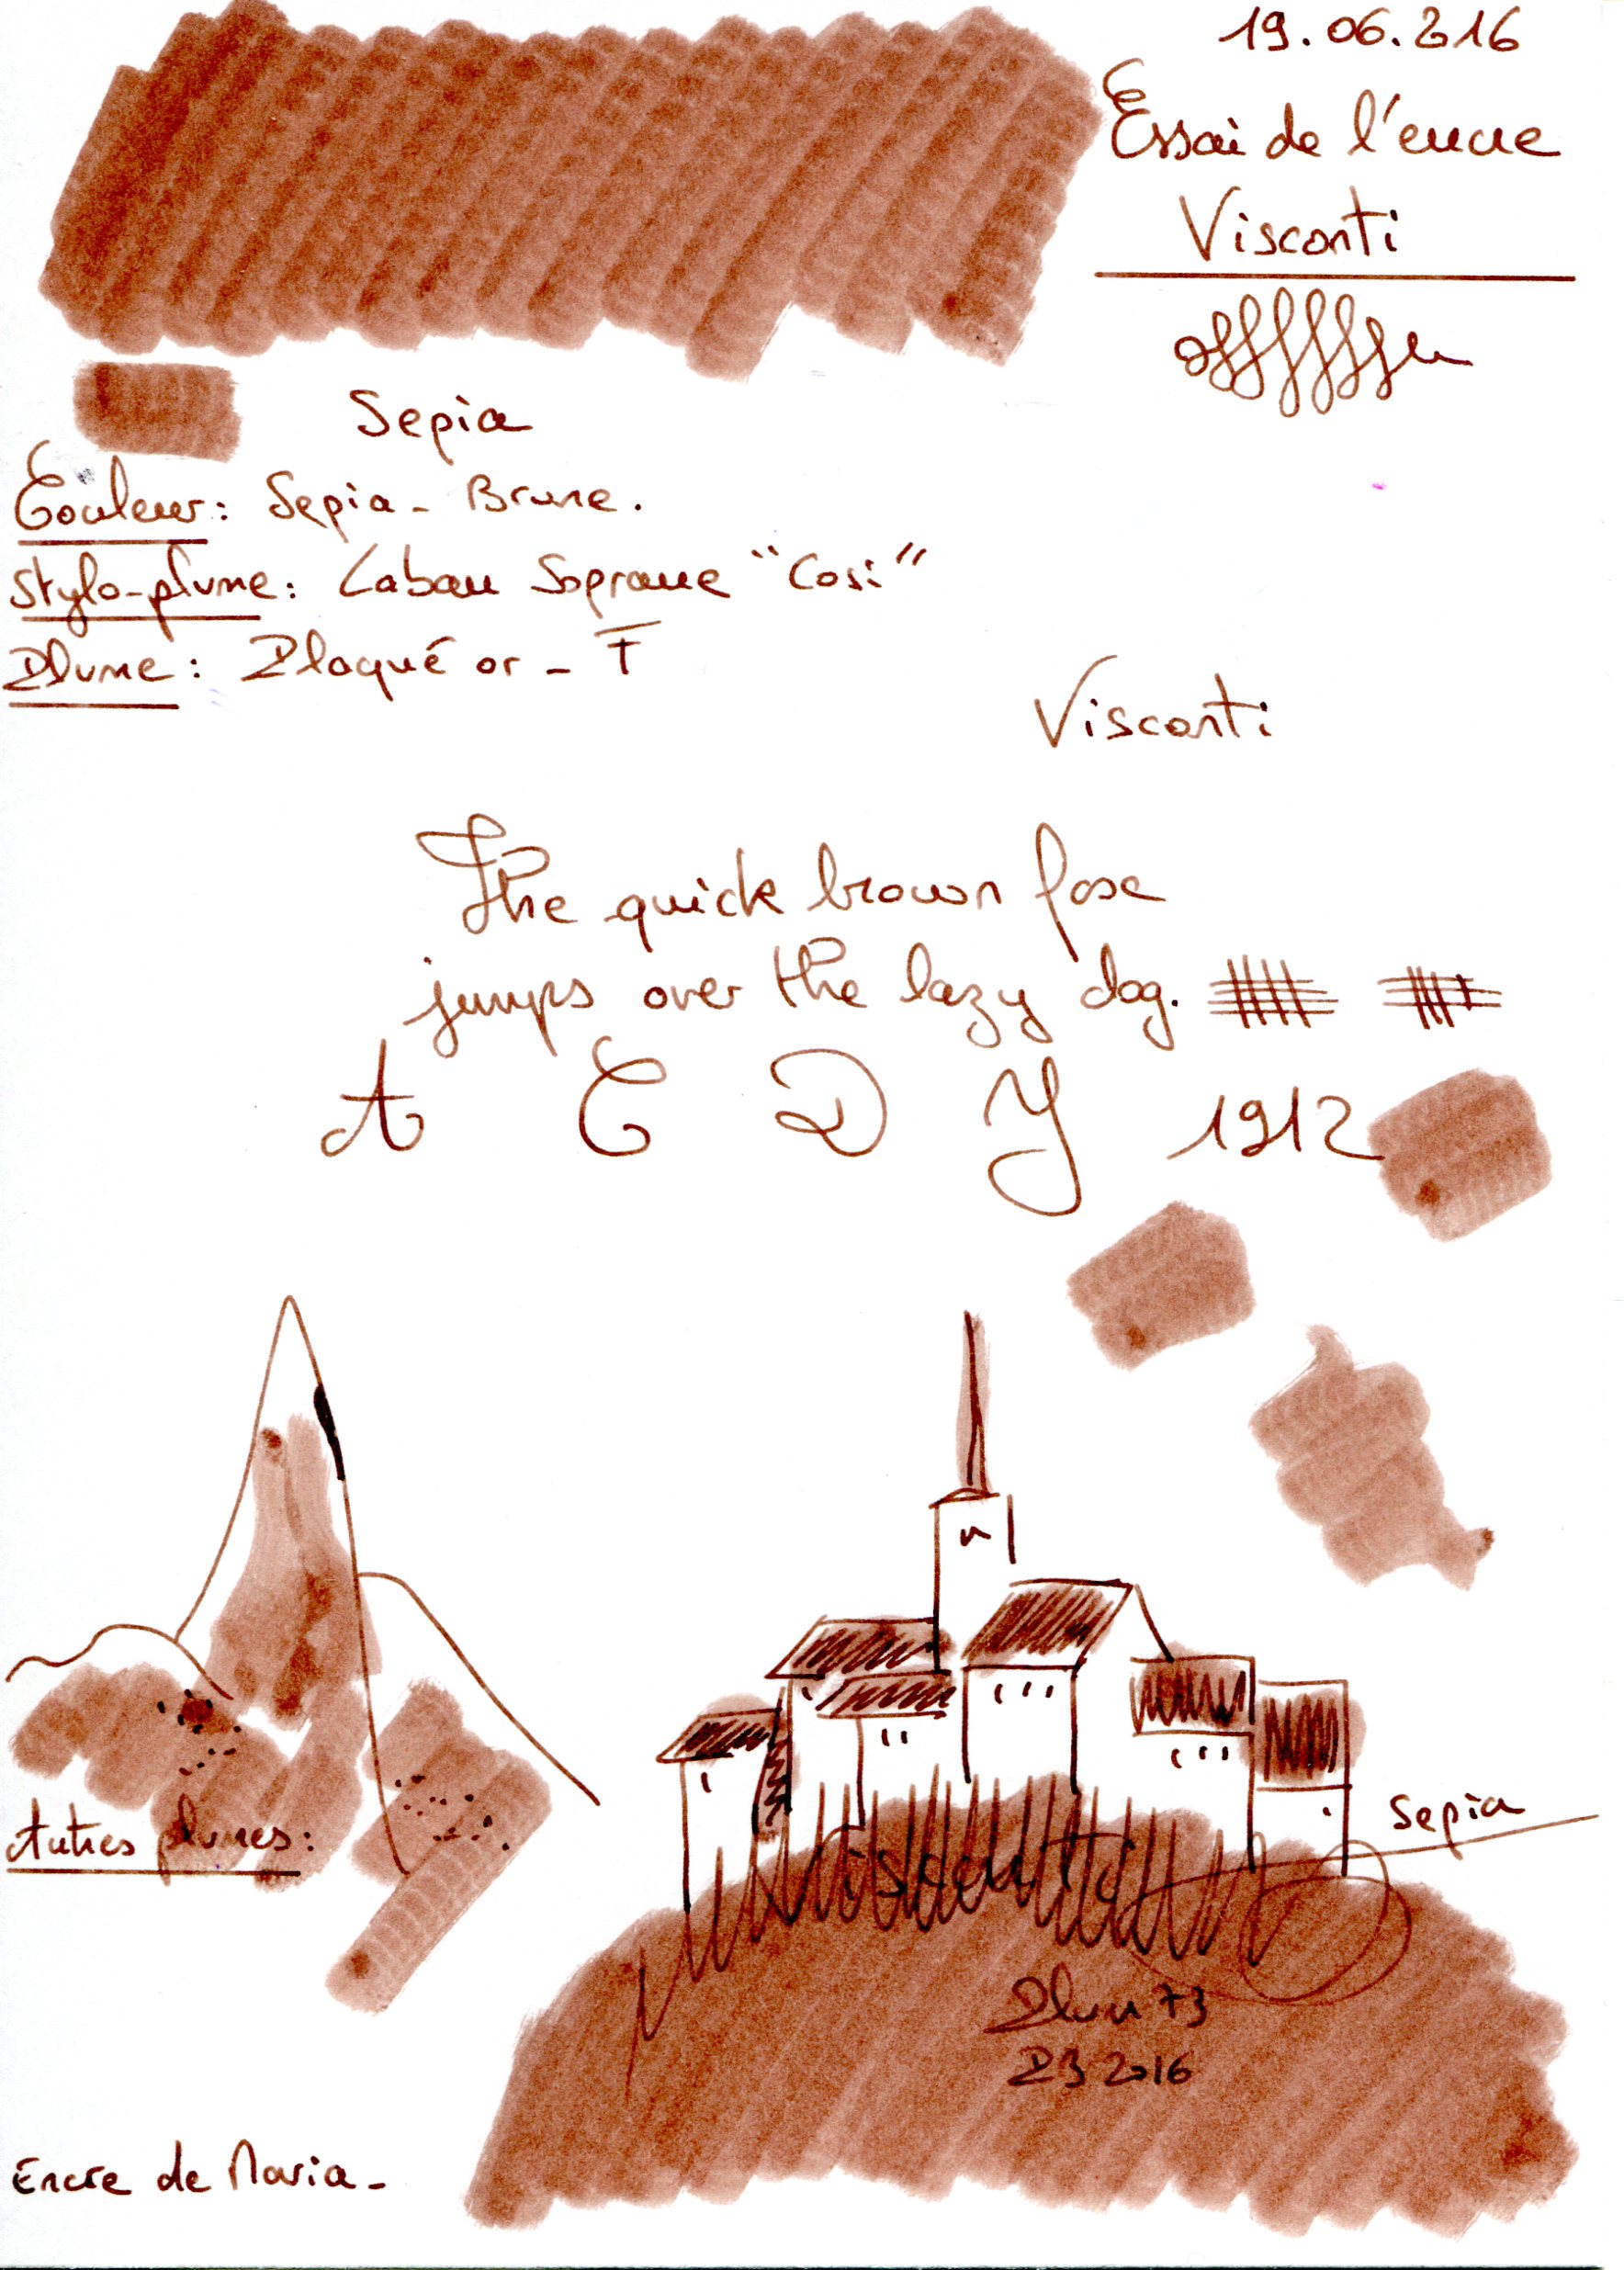 19.06.216
Essai de l'encre
Visconti
Sepia
Couleur: Sepia - Brune.
Stylo-plume: Laban Soprane "Cosi"
Plume: Plaqué or - F
Visconti
The quick brown fox
jumps over the lazy dog.
A C D Y 1912
Sepia
Autres plumes:
Visconti
Plum 73
PB 2016
Encre de Maria -